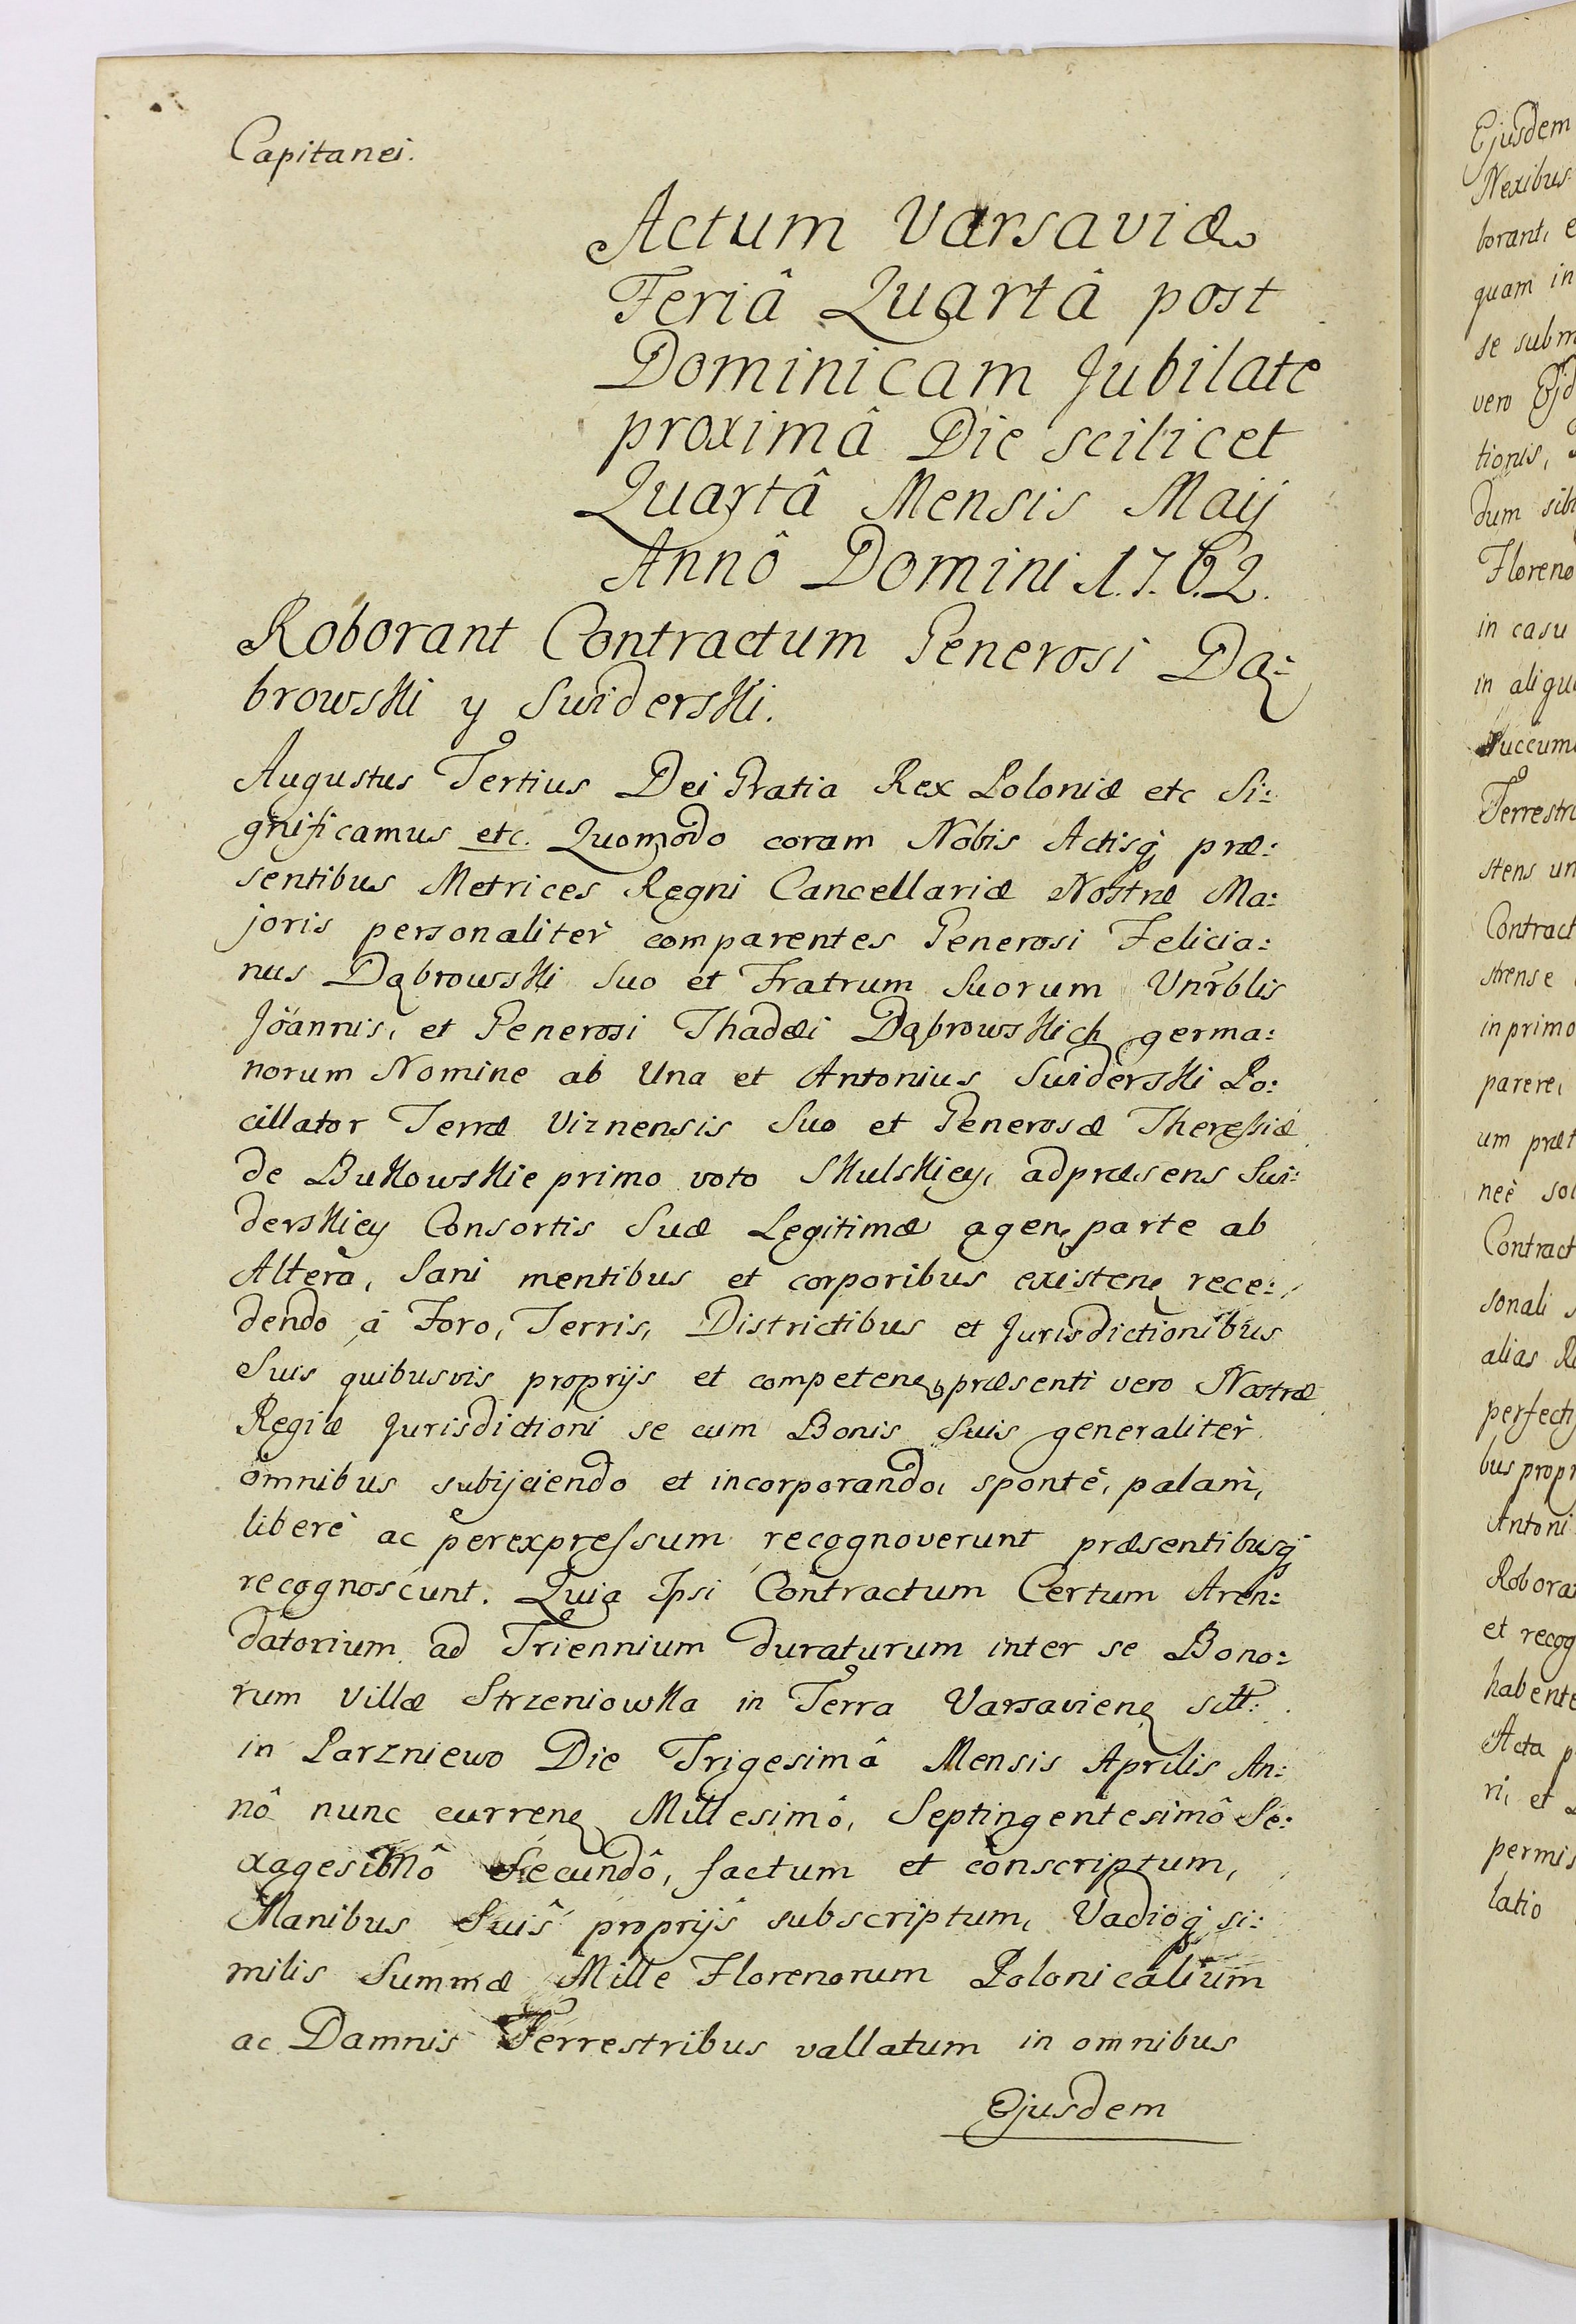 Capitanei.
Actum Varsaviæ
Feriâ Quartâ post
Dominicam Jubilate
proximâ Die scilicet
Quartâ Mensis Maij
Annô Domini 1762.
Roborant Contractum Generosi Dą:
browski y Swiderski.
Augustus Tertius Dei Gratia Rex Poloniæ etc Si:
gnificamus etc. Quomodo coram Nobis Actisq præ:
sentibus Metrices Regni Cancellariæ Nostræ Ma:
joris personalitèr comparentes Generosi Felicia:
nus Dąbrowski Suo et Fratrum Suorum Vnrblis
Joannis, et Generosi Thadæi Dąbrowskich germa:
norum Nomine ab Una et Antonius Swiderski Po:
cillator Terræ Viznensis Suo et Generosæ Theressiæ
de Bukowskie primo voto Skulskiey, adpræsens Swi:
derskiey Consortis Suæ Legitimæ agen parte ab
Altera, Sani mentibus et corporibus existen rece:
dendo à Foro, Terris, Districtibus et Jurisdictionibus
Suis quibusvis proprijs et competen præsenti vero Nostræ
Regiæ Jurisdictioni se cum Bonis Suis generalitèr
omnibus subijciendo et incorporando, spontè, palàm,
liberè ac perexpressum recognoverunt præsentibusq
recognoscunt. Quia Ipsi Contractum Certum Aren:
datorium ad Triennium duraturum inter se Bono:
rum Villæ Strzeniowka in Terra Varsavien sitt:
in Parzniewo Die Trigesimâ Mensis Aprilis An:
nô nunc curren Millesimô, Septingentesimô Se:
xagesimô Secundô, factum et conscriptum,
Manibus Suis proprijs subscriptum, Vadioq si:
milis Summæ Mille Florenorum Polonicalium
ac Damnis Terrestribus vallatum in omnibus
Ejusdem
Ejusdem
Nexibus
borant, e
quam in
se subm
vero Ejd
tionis,
dum sibi
Floreno
in casu
in aliqu
succum
Terrestri
stens un
Contract
strense
in primo
parere,
um præt
neè sol
Contract
sonali s
alias Re
perfect
bus propr
Antoni
Robora
et recog
habente
Acta p
ri, et
permis
latio